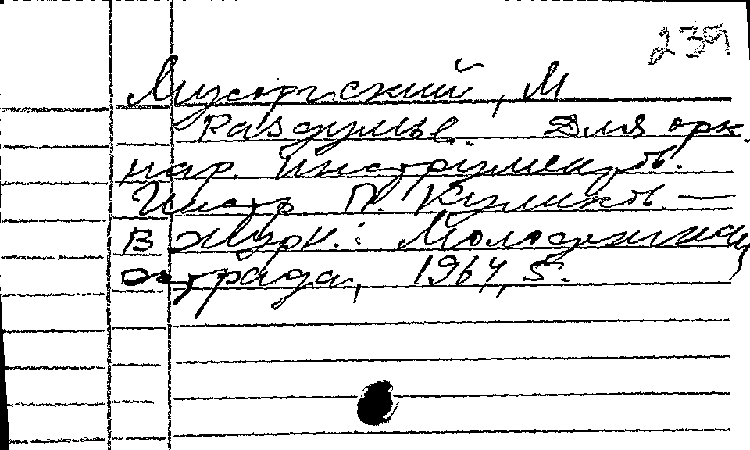 239
Мусоргский, М
Раздумье. Для орк.
нар. инструментов.
Инстр. П. Куликов —
В журн.: Молодежная
эстрада, 1964, 5.